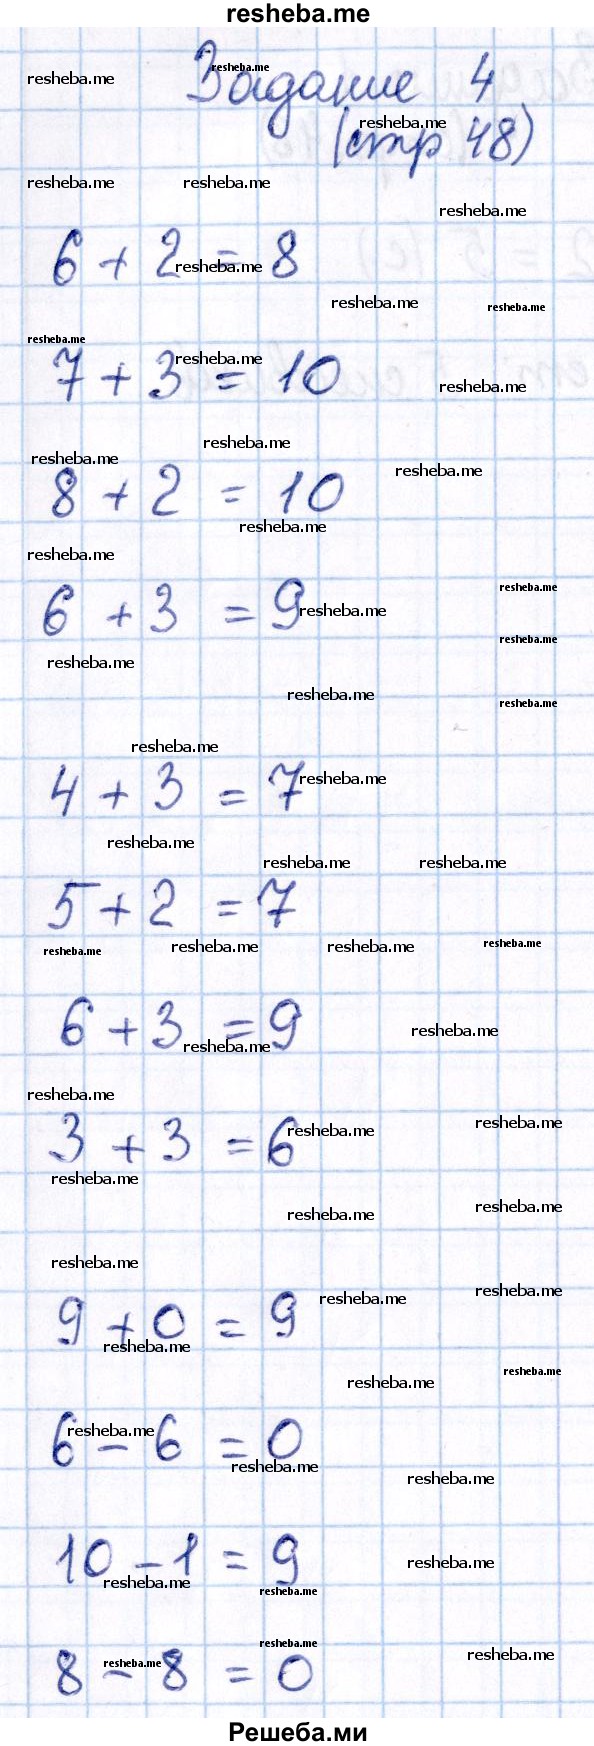 resheba.me
Задание 4
(стр 48)
6 + 2 = 8
7 + 3 = 10
8 + 2 = 10
6 + 3 = 9
4 + 3 = 7
5 + 2 = 7
6 + 3 = 9
3 + 3 = 6
9 + 0 = 9
6 - 6 = 0
10 - 1 = 9
8 - 8 = 0
Решеба.ми